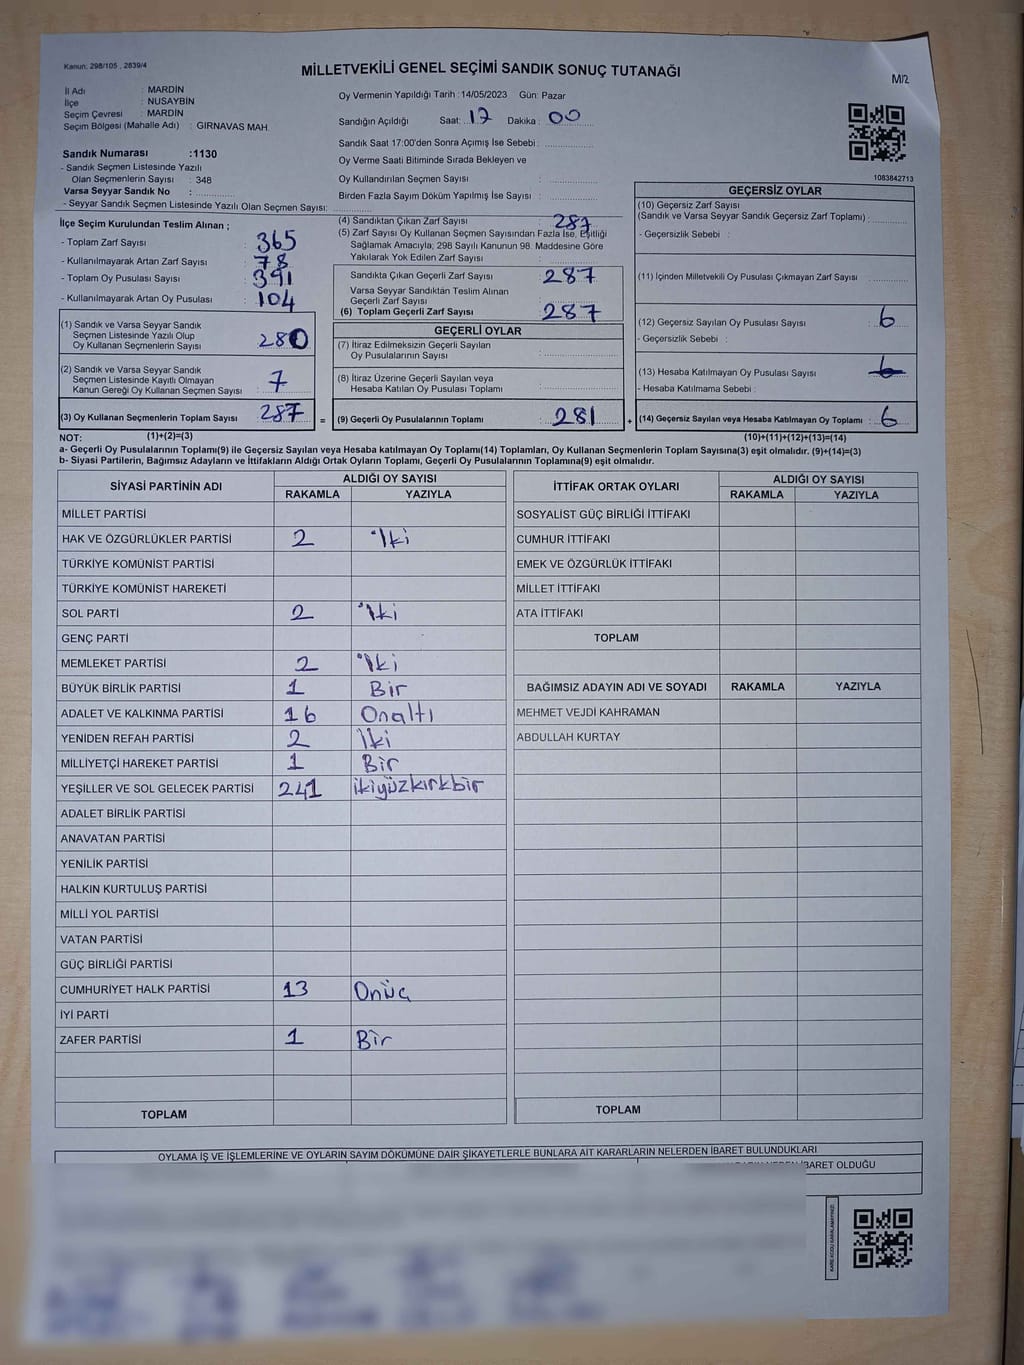 Kanun: 298/105 , 2839/4
MİLLETVEKİLİ GENEL SEÇİMİ SANDIK SONUÇ TUTANAĞI
M/2
İl Adı : MARDİN
İlçe : NUSAYBİN
Seçim Çevresi : MARDİN
Seçim Bölgesi (Mahalle Adı) : GIRNAVAS MAH.
Sandık Numarası :1130
- Sandık Seçmen Listesinde Yazılı
Olan Seçmenlerin Sayısı : 348
Varsa Seyyar Sandık No :
- Seyyar Sandık Seçmen Listesinde Yazılı Olan Seçmen Sayısı:
Oy Vermenin Yapıldığı Tarih : 14/05/2023 Gün: Pazar
Sandığın Açıldığı Saat: 17 Dakika : 00
Sandık Saat 17:00'den Sonra Açımış İse Sebebi :
Oy Verme Saati Bitiminde Sırada Bekleyen ve
Oy Kullandırılan Seçmen Sayısı :
Birden Fazla Sayım Döküm Yapılmış İse Sayısı :
1083842713
İlçe Seçim Kurulundan Teslim Alınan ;
- Toplam Zarf Sayısı : 365
- Kullanılmayarak Artan Zarf Sayısı : 78
- Toplam Oy Pusulası Sayısı : 391
- Kullanılmayarak Artan Oy Pusulası : 104
(1) Sandık ve Varsa Seyyar Sandık
Seçmen Listesinde Yazılı Olup
Oy Kullanan Seçmenlerin Sayısı : 280
(2) Sandık ve Varsa Seyyar Sandık
Seçmen Listesinde Kayıtlı Olmayan
Kanun Gereği Oy Kullanan Seçmen Sayısı : 7
(3) Oy Kullanan Seçmenlerin Toplam Sayısı : 287 =
(4) Sandıktan Çıkan Zarf Sayısı : 287
(5) Zarf Sayısı Oy Kullanan Seçmen Sayısından Fazla İse, Eşitliği
Sağlamak Amacıyla; 298 Sayılı Kanunun 98. Maddesine Göre
Yakılarak Yok Edilen Zarf Sayısı :
Sandıkta Çıkan Geçerli Zarf Sayısı : 287
Varsa Seyyar Sandıktan Teslim Alınan
Geçerli Zarf Sayısı :
(6) Toplam Geçerli Zarf Sayısı : 287
GEÇERLİ OYLAR
(7) İtiraz Edilmeksizin Geçerli Sayılan
Oy Pusulalarının Sayısı :
(8) İtiraz Üzerine Geçerli Sayılan veya
Hesaba Katılan Oy Pusulası Toplamı :
(9) Geçerli Oy Pusulalarının Toplamı : 281 +
GEÇERSİZ OYLAR
(10) Geçersiz Zarf Sayısı
(Sandık ve Varsa Seyyar Sandık Geçersiz Zarf Toplamı) :
- Geçersizlik Sebebi :
(11) İçinden Milletvekili Oy Pusulası Çıkmayan Zarf Sayısı :
(12) Geçersiz Sayılan Oy Pusulası Sayısı : 6
- Geçersizlik Sebebi :
(13) Hesaba Katılmayan Oy Pusulası Sayısı : 6
- Hesaba Katılmama Sebebi :
(14) Geçersiz Sayılan veya Hesaba Katılmayan Oy Toplamı : 6
NOT: (1)+(2)=(3) (10)+(11)+(12)+(13)=(14)
a- Geçerli Oy Pusulalarının Toplamı(9) ile Geçersiz Sayılan veya Hesaba katılmayan Oy Toplamı(14) Toplamları, Oy Kullanan Seçmenlerin Toplam Sayısına(3) eşit olmalıdır. (9)+(14)=(3)
b- Siyasi Partilerin, Bağımsız Adayların ve İttifakların Aldığı Ortak Oyların Toplamı, Geçerli Oy Pusulalarının Toplamına(9) eşit olmalıdır.
SİYASİ PARTİNİN ADI ALDIĞI OY SAYISI
RAKAMLA YAZIYLA
MİLLET PARTİSİ
HAK VE ÖZGÜRLÜKLER PARTİSİ 2 İki
TÜRKİYE KOMÜNİST PARTİSİ
TÜRKİYE KOMÜNİST HAREKETİ
SOL PARTİ 2 İki
GENÇ PARTİ
MEMLEKET PARTİSİ 2 İki
BÜYÜK BİRLİK PARTİSİ 1 Bir
ADALET VE KALKINMA PARTİSİ 16 Onaltı
YENİDEN REFAH PARTİSİ 2 İki
MİLLİYETÇİ HAREKET PARTİSİ 1 Bir
YEŞİLLER VE SOL GELECEK PARTİSİ 241 ikiyüzkırkbir
ADALET BİRLİK PARTİSİ
ANAVATAN PARTİSİ
YENİLİK PARTİSİ
HALKIN KURTULUŞ PARTİSİ
MİLLİ YOL PARTİSİ
VATAN PARTİSİ
GÜÇ BİRLİĞİ PARTİSİ
CUMHURİYET HALK PARTİSİ 13 Onüç
İYİ PARTİ
ZAFER PARTİSİ 1 Bir
TOPLAM
İTTİFAK ORTAK OYLARI ALDIĞI OY SAYISI
RAKAMLA YAZIYLA
SOSYALİST GÜÇ BİRLİĞİ İTTİFAKI
CUMHUR İTTİFAKI
EMEK VE ÖZGÜRLÜK İTTİFAKI
MİLLET İTTİFAKI
ATA İTTİFAKI
TOPLAM
BAĞIMSIZ ADAYIN ADI VE SOYADI RAKAMLA YAZIYLA
MEHMET VEJDİ KAHRAMAN
ABDULLAH KURTAY
TOPLAM
OYLAMA İŞ VE İŞLEMLERİNE VE OYLARIN SAYIM DÖKÜMÜNE DAİR ŞİKAYETLERLE BUNLARA AİT KARARLARIN NELERDEN İBARET BULUNDUKLARI
İBARET OLDUĞU
KARE KODU KARALAMAYINIZ!